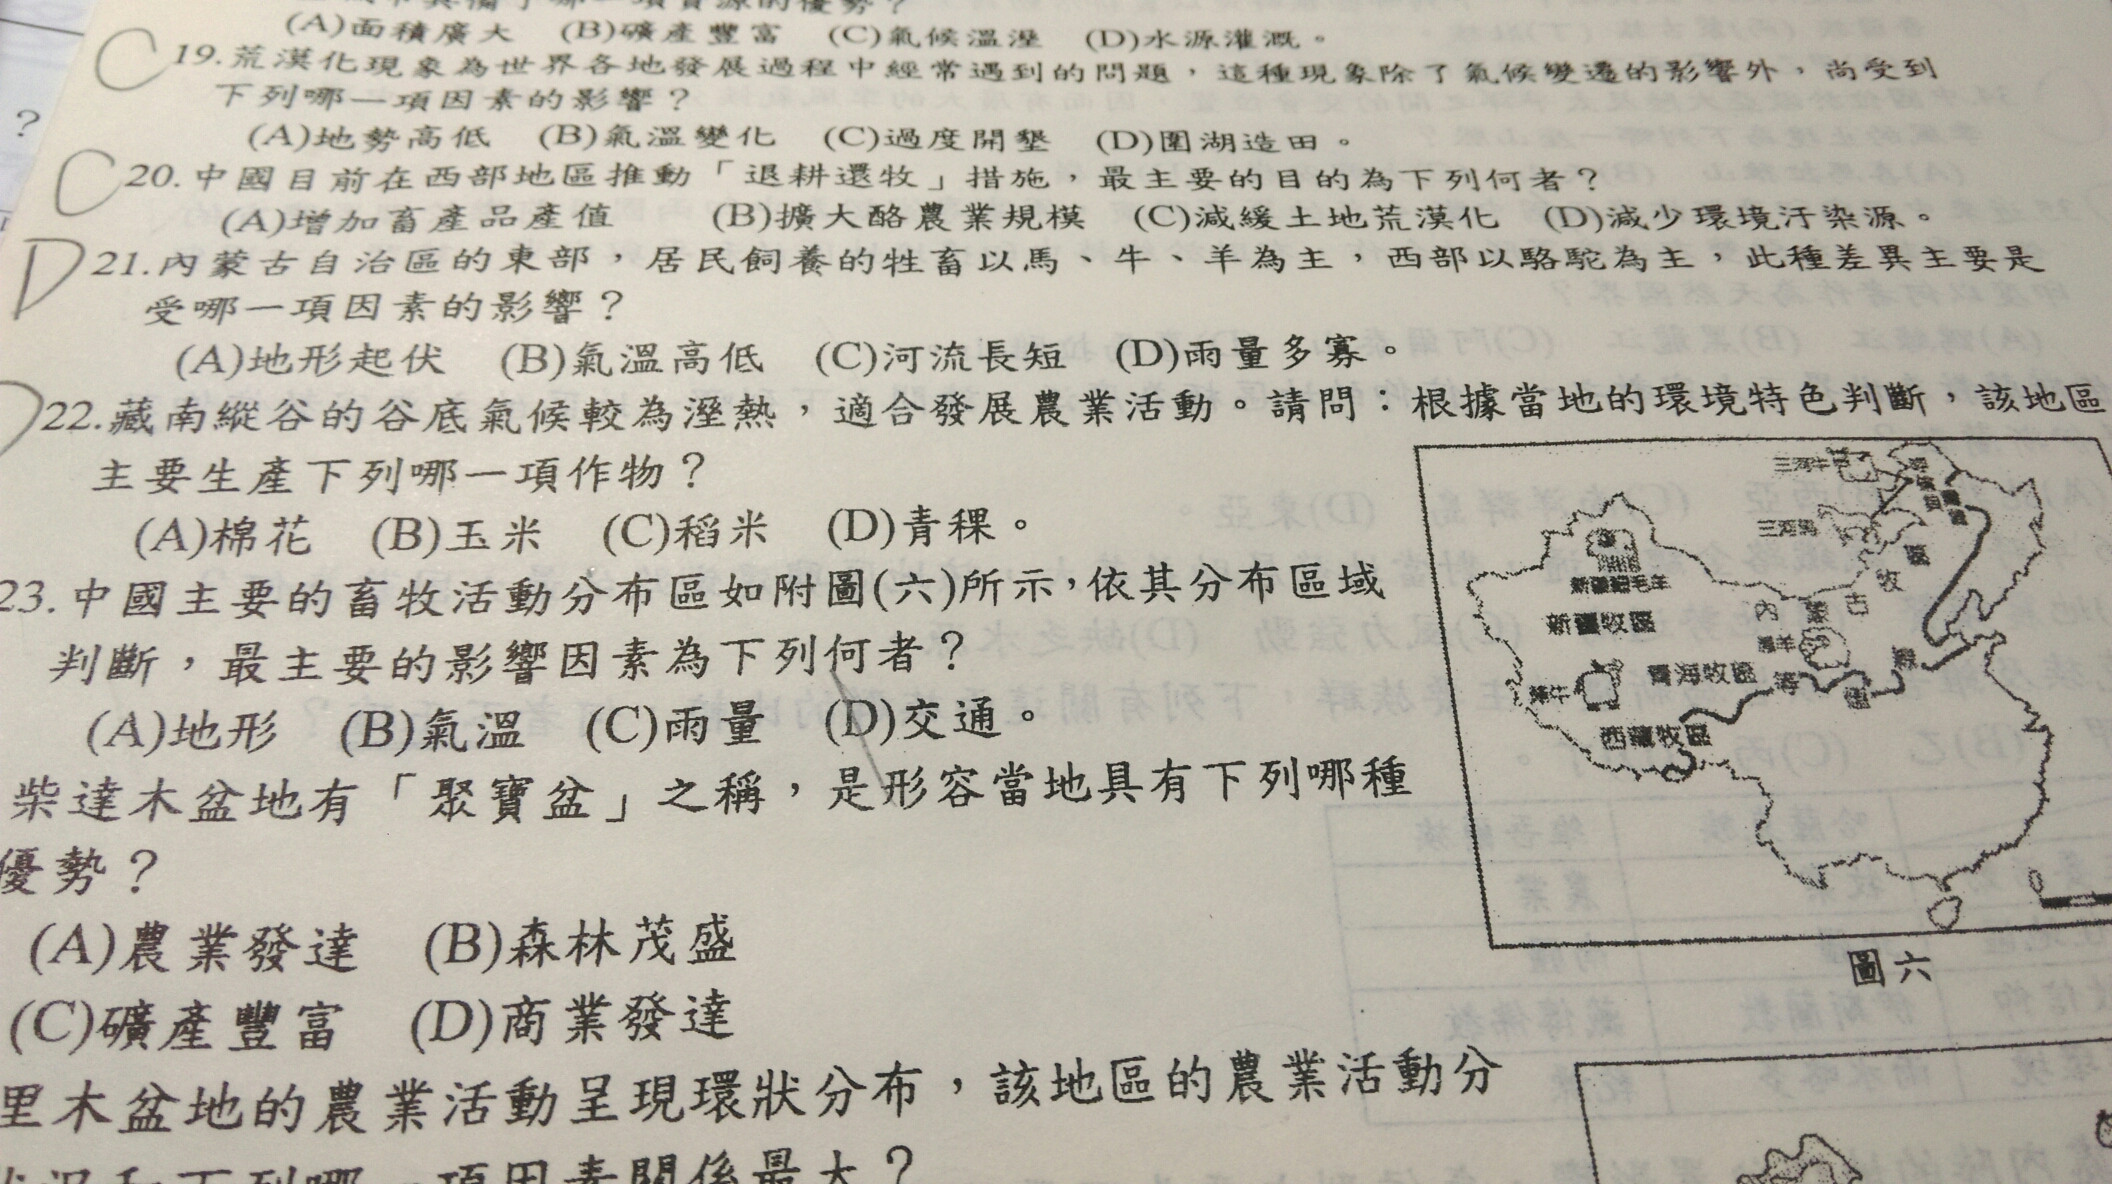 (A)面積廣大 (B)礦產豐富 (C)氣候溫溼 (D)水源灌溉。
C 19.荒漠化現象為世界各地發展過程中經常遇到的問題，這種現象除了氣候變遷的影響外，尚受到
下列哪一項因素的影響？
(A)地勢高低 (B)氣溫變化 (C)過度開墾 (D)圍湖造田。
C 20.中國目前在西部地區推動「退耕還牧」措施，最主要的目的為下列何者？
(A)增加畜產品產值 (B)擴大酪農業規模 (C)減緩土地荒漠化 (D)減少環境汙染源。
D 21.內蒙古自治區的東部，居民飼養的牲畜以馬、牛、羊為主，西部以駱駝為主，此種差異主要是
受哪一項因素的影響？
(A)地形起伏 (B)氣溫高低 (C)河流長短 (D)雨量多寡。
22.藏南縱谷的谷底氣候較為溼熱，適合發展農業活動。請問：根據當地的環境特色判斷，該地區
主要生產下列哪一項作物？
(A)棉花 (B)玉米 (C)稻米 (D)青稞。
23.中國主要的畜牧活動分布區如附圖(六)所示，依其分布區域
判斷，最主要的影響因素為下列何者？
(A)地形 (B)氣溫 (C)雨量 (D)交通。
柴達木盆地有「聚寶盆」之稱，是形容當地具有下列哪種
優勢？
(A)農業發達 (B)森林茂盛
(C)礦產豐富 (D)商業發達
里木盆地的農業活動呈現環狀分布，該地區的農業活動分
下列哪一項因素關係最大？
三河牛
三河馬
新疆細毛羊
新疆牧區
內蒙古牧區
青海牧區
犛牛
西藏牧區
圖六